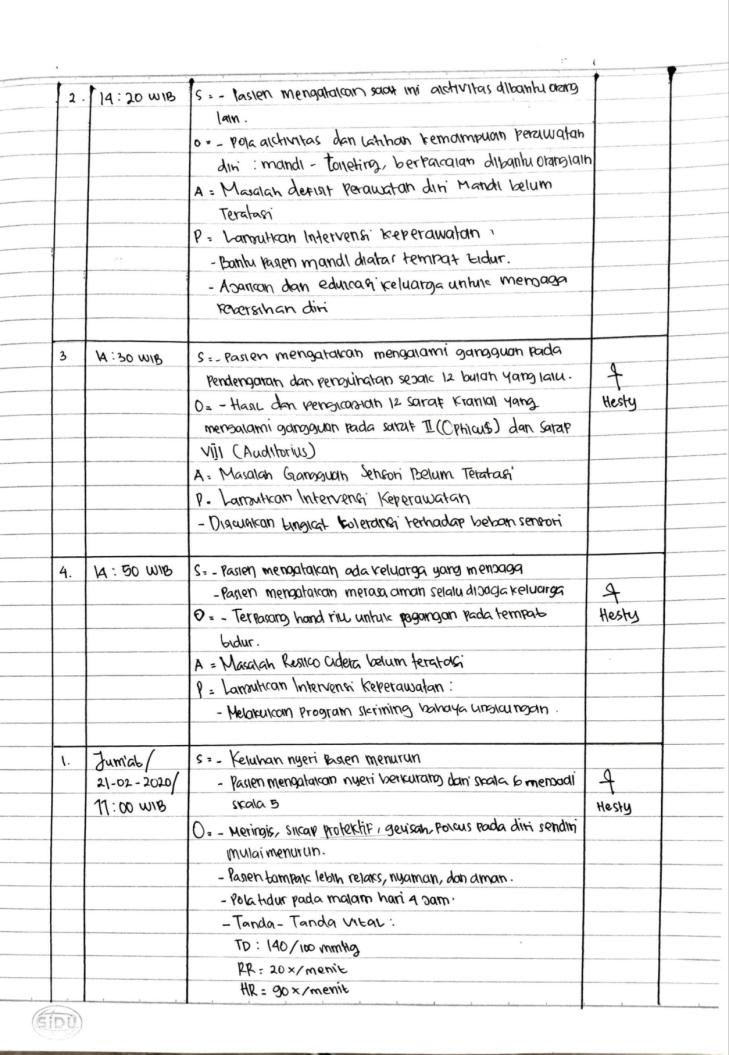 2. 14:20 WIB S = - Pasien mengatakan saat ini aktivitas dibantu orang
lain.
O = - Pola aktivitas dan latihan kemampuan perawatan
diri : mandi - toileting, berpakaian dibantu orang lain
A = Masalah defisit Perawatan diri Mandi belum
Teratasi
P = Lanjutkan Intervensi keperawatan
- Bantu pasien mandi diatas tempat tidur.
- Ajarkan dan edukasi keluarga untuk menjaga
kebersihan diri
3 14:30 WIB S = - Pasien mengatakan mengalami gangguan pada
Pendengaran dan penglihatan sejak 12 bulan yang lalu.
O = - Hasil dari pengkajian 12 saraf kranial yang
mengalami gangguan pada saraf II (Opticus) dan saraf
VIII (Auditorius)
A = Masalah Gangguan Sensori Belum Teratasi
P = Lanjutkan Intervensi Keperawatan
- Diskusikan tingkat toleransi terhadap beban sensori
Hesty
4. 14:50 WIB S = - Pasien mengatakan ada keluarga yang menjaga
- Pasien mengatakan merasa aman selalu dijaga keluarga
O = - Terpasang hand riil untuk pegangan pada tempat
tidur.
A = Masalah Resiko cidera belum teratasi
P = Lanjutkan Intervensi Keperawatan :
- Melakukan program skrining bahaya lingkungan.
Hesty
1. Jum'at/
21-02-2020/
11:00 WIB
S = - Keluhan nyeri pasien menurun
- Pasien mengatakan nyeri berkurang dari skala 6 menjadi
skala 5
O = - Meringis, sikap protektif, gelisah, Fokus pada diri sendiri
mulai menurun.
- Pasien tampak lebih relaks, nyaman, dan aman.
- Pola tidur pada malam hari 4 jam.
- Tanda - Tanda Vital :
TD : 140/100 mmHg
RR = 20 x/menit
HR = 90 x/menit
Hesty
SiDU